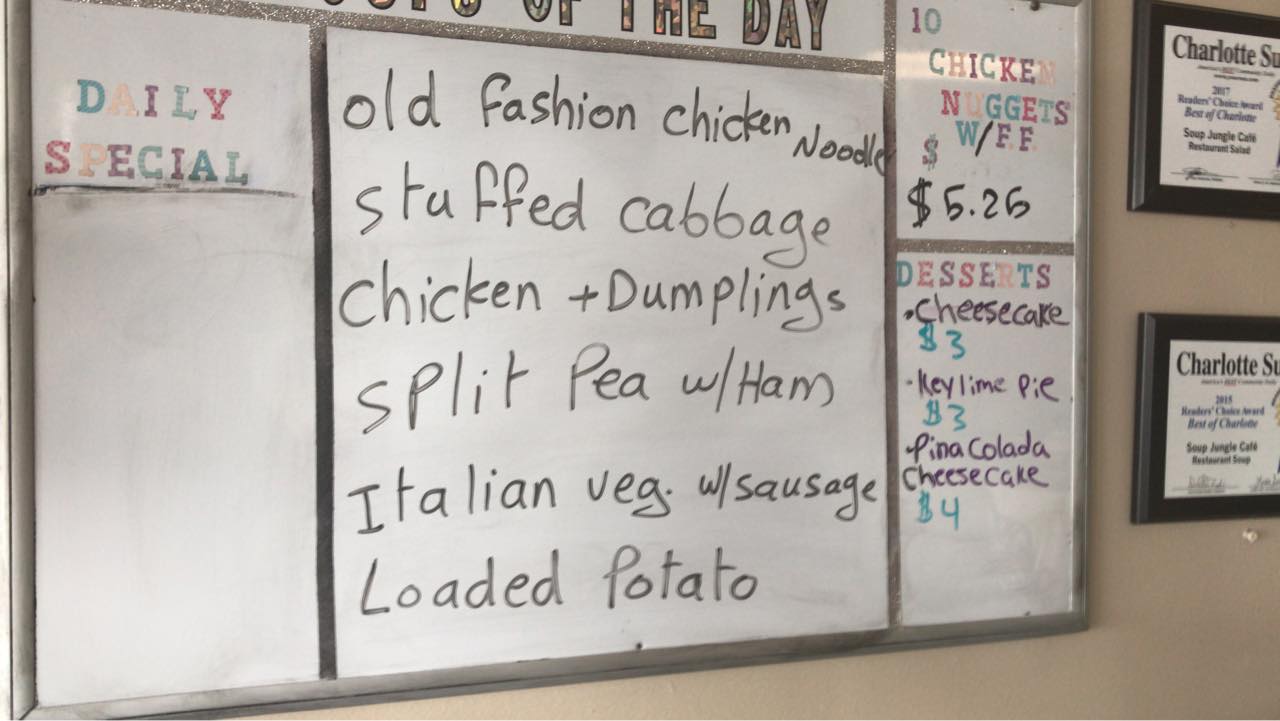 OF THE DAY
DAILY
SPECIAL
old fashion chicken Noodle
stuffed cabbage
chicken + Dumplings
split Pea w/Ham
Italian veg. w/sausage
Loaded Potato
10
CHICKEN
NUGGETS
W/F.F.
$
$5.25
DESSERTS
• Cheesecake
$3
• Key lime Pie
$3
• Pina Colada
Cheesecake
$4
Charlotte
2017
Readers' Choice Award
Best of Charlotte
Soup Jungle Café
Restaurant Salad
Charlotte
2015
Readers' Choice Award
Best of Charlotte
Soup Jungle Café
Restaurant Soup